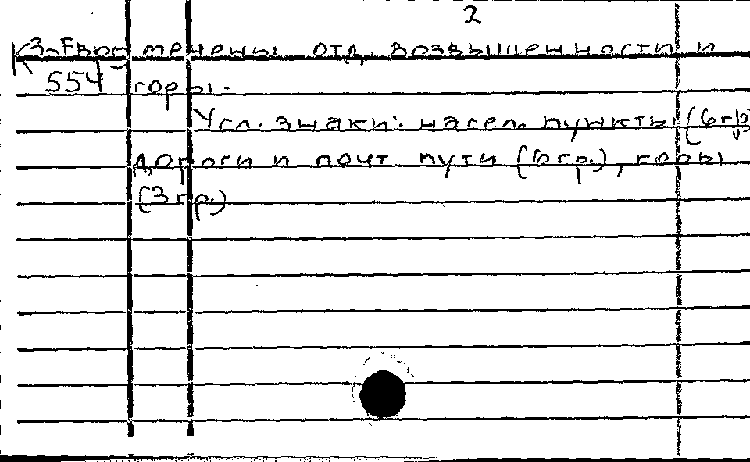 2
К3-Евр мечены отд. возвышенности и
554 горы.
Усл. знаки: насел. пункты (6 гр.)
дороги и почт пути (6 гр.), горы
(3 гр.)